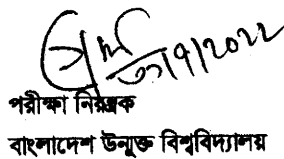 ৩১/৭/২০২২
পরীক্ষা নিয়ন্ত্রক
বাংলাদেশ উন্মুক্ত বিশ্ববিদ্যালয়